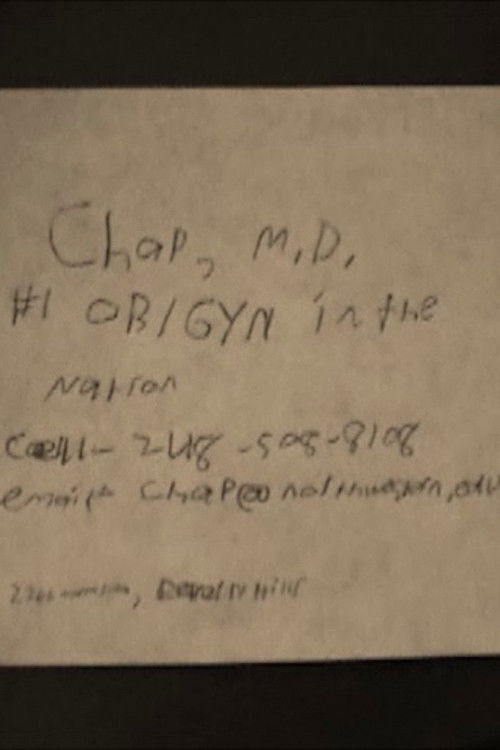 Chap, M.D.
#1 OB/GYN in the
Nation
Cell- 248-508-8108
email- Chap@northwestern.edu